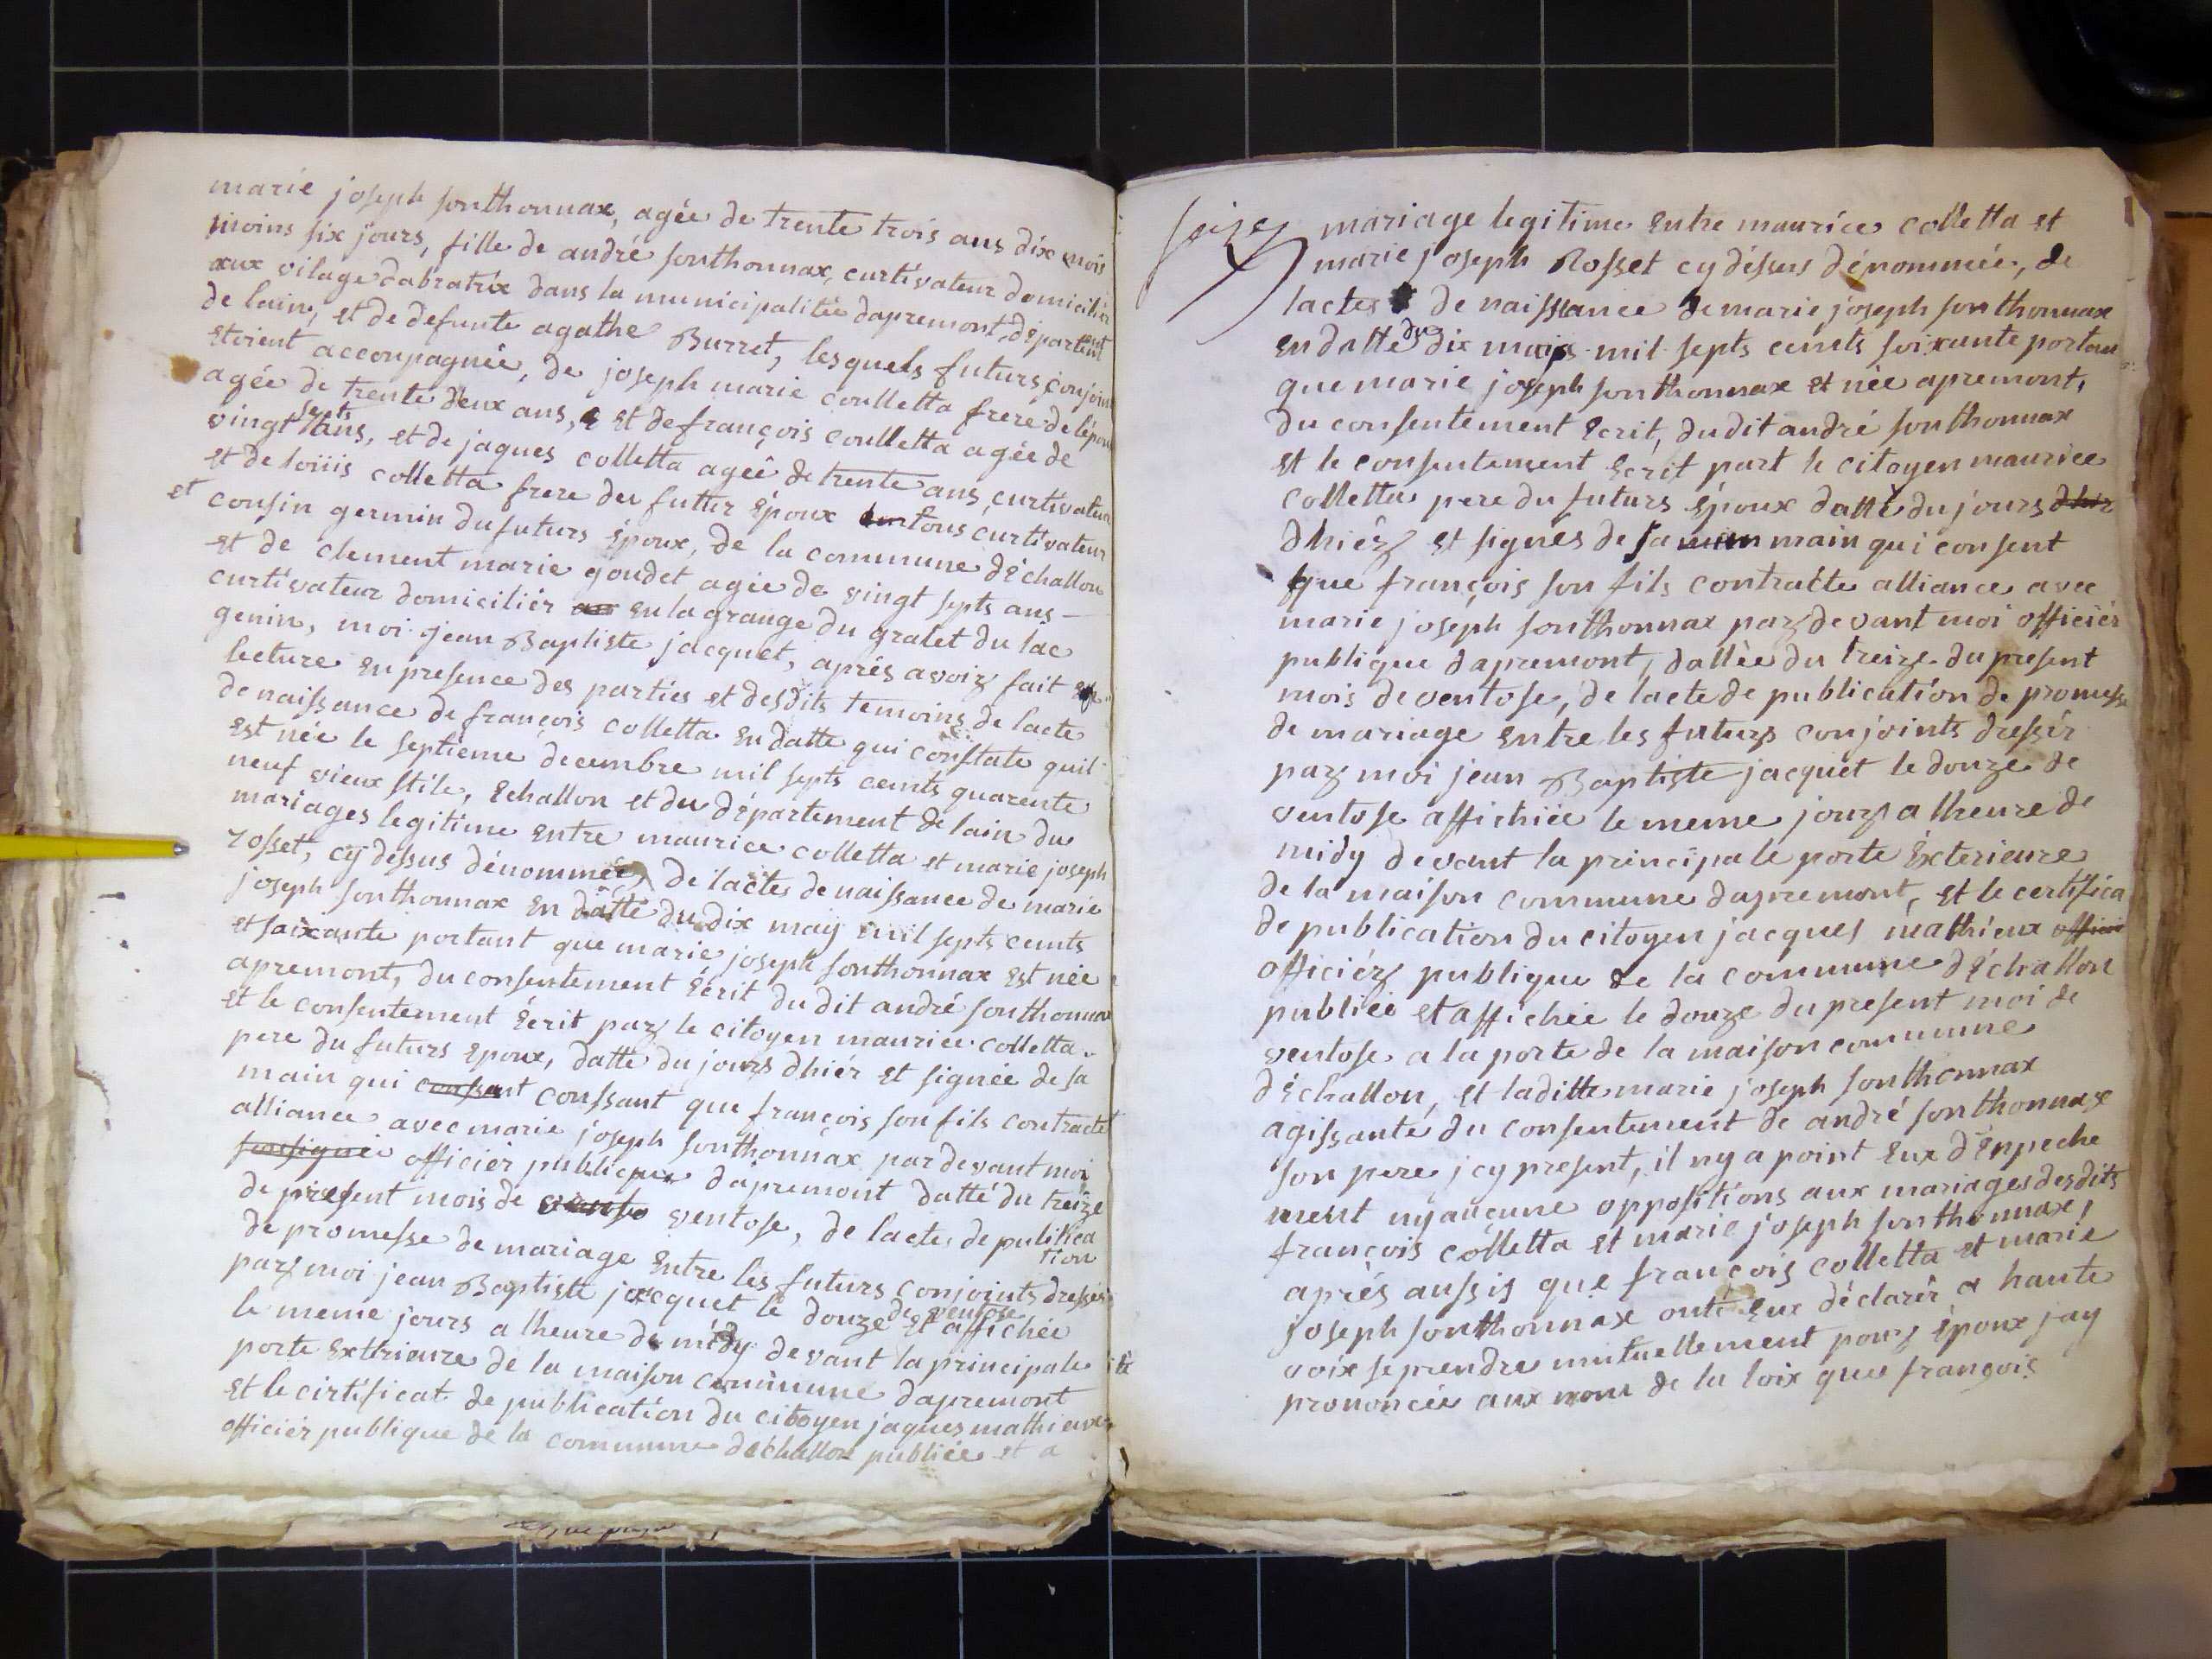 marie joseph sonthonnax, agée de trente trois ans dix mois
moins six jours, fille de andré sonthonnax, curtivateur domicilier
aux vilage dabratrix dans la municipalitée dapremont, départent
de lain, et de defunte agathe Burret, lesquels futurs conjoint
etoient accompagnée, de joseph marie coulletta frere de lépoux
agée de trente deux ans, et de françois coulletta agée de
vingt septs ans, et de jaques colletta ageê de trente ans, curtivateur
et de loüis colletta frere du futter époux tous curtivateur
et cousin germin du futurs époux, de la commune dÉchallon
et de clement marie goudet agée de vingt septs ans -
curtivateur domiciliér en la grange du gralet du lac
genin, moi jean Baptiste jacquet, aprés avoir fait
lecture en presence des parties et desdits temoins de lacte
de naissance de françois colletta en datte qui constate quil
est née le septieme decembre mil septs cents quarente
neuf vieux stile, Echallon et du département de lain du
mariages legitime entre maurice colletta et marie joseph
rosset, cy dessus dénommée, de lactes de naissance de marie
joseph sonthonnax en datte du dix may mil septs cents
et soixante portant que marie joseph sonthonnax est née
apremont, du consentement écrit du dit andré sonthonnax
et le consentement écrit par le citoyen maurice colletta
pere du futurs epoux, datte du jours dhiér et signée de sa
main qui consant consant que françois son fils contracte
alliance avec marie joseph sonthonnax par devant moi
sousigné officiér publique dapremont datté du treize
de present mois de ventose, de lactes de publica
tion
de promesse de mariage entre les futurs conjoints dressés
par moi jean Baptiste jacquet le douze de ventose et affichée
le meme jours a lheure de midy devant la principale
porte exttrieure de la maison commune dapremont
et le cirtificat de publication du citoyen jaques mathieux
officiér publique de la commune déchallon publiée et a
seize mariage legitime entre maurice colletta et
marie joseph Rosset cy déssus dénommée, de
lactes de naissance de marie joseph sonthonnax
en datte du dix mais mil septs cents soixante portan
que marie joseph sonthonnax et née apremont,
du consentement ecrit, du dit andré sonthonnax
et le consentement ecrit part le citoyen maurice
colletta pere du futurs époux datté du jours dhier
dhiér et signés de sa main qui consent
que françois son fils contracte alliance avec
marie joseph sonthonnax par devant moi officiér
publique dapremont, dattée du treize du present
mois de ventose, de lacte de publication de promesse
de mariage entre les futurs conjoints dressér
par moi jean Baptiste jacquet le douze de
ventose affichée le meme jours a lheure de
midy devant la principale porte éxterieure
de la maison commune dapremont, et le certifica
de publication du citoyen jacques mathieux officié
officiér publique de la commune dÉchallon
publiée et affichée le douze du present moi de
ventose a la porte de la maison commune
déchallon, et laditte marie joseph sonthonnax
agissante du consentement de andré sonthonnax
son pere jcy present, il ny a point eux dénpeche
ment ny aucune oppositions aux mariages desdits
françois colletta et marie joseph sonthonnax,
après aussis que françois colletta et marie
joseph sonthonnax onté eux déclarér a haute
voix se prendre mutuellement pour époux jay
prononcée aux nom de la loix que françois